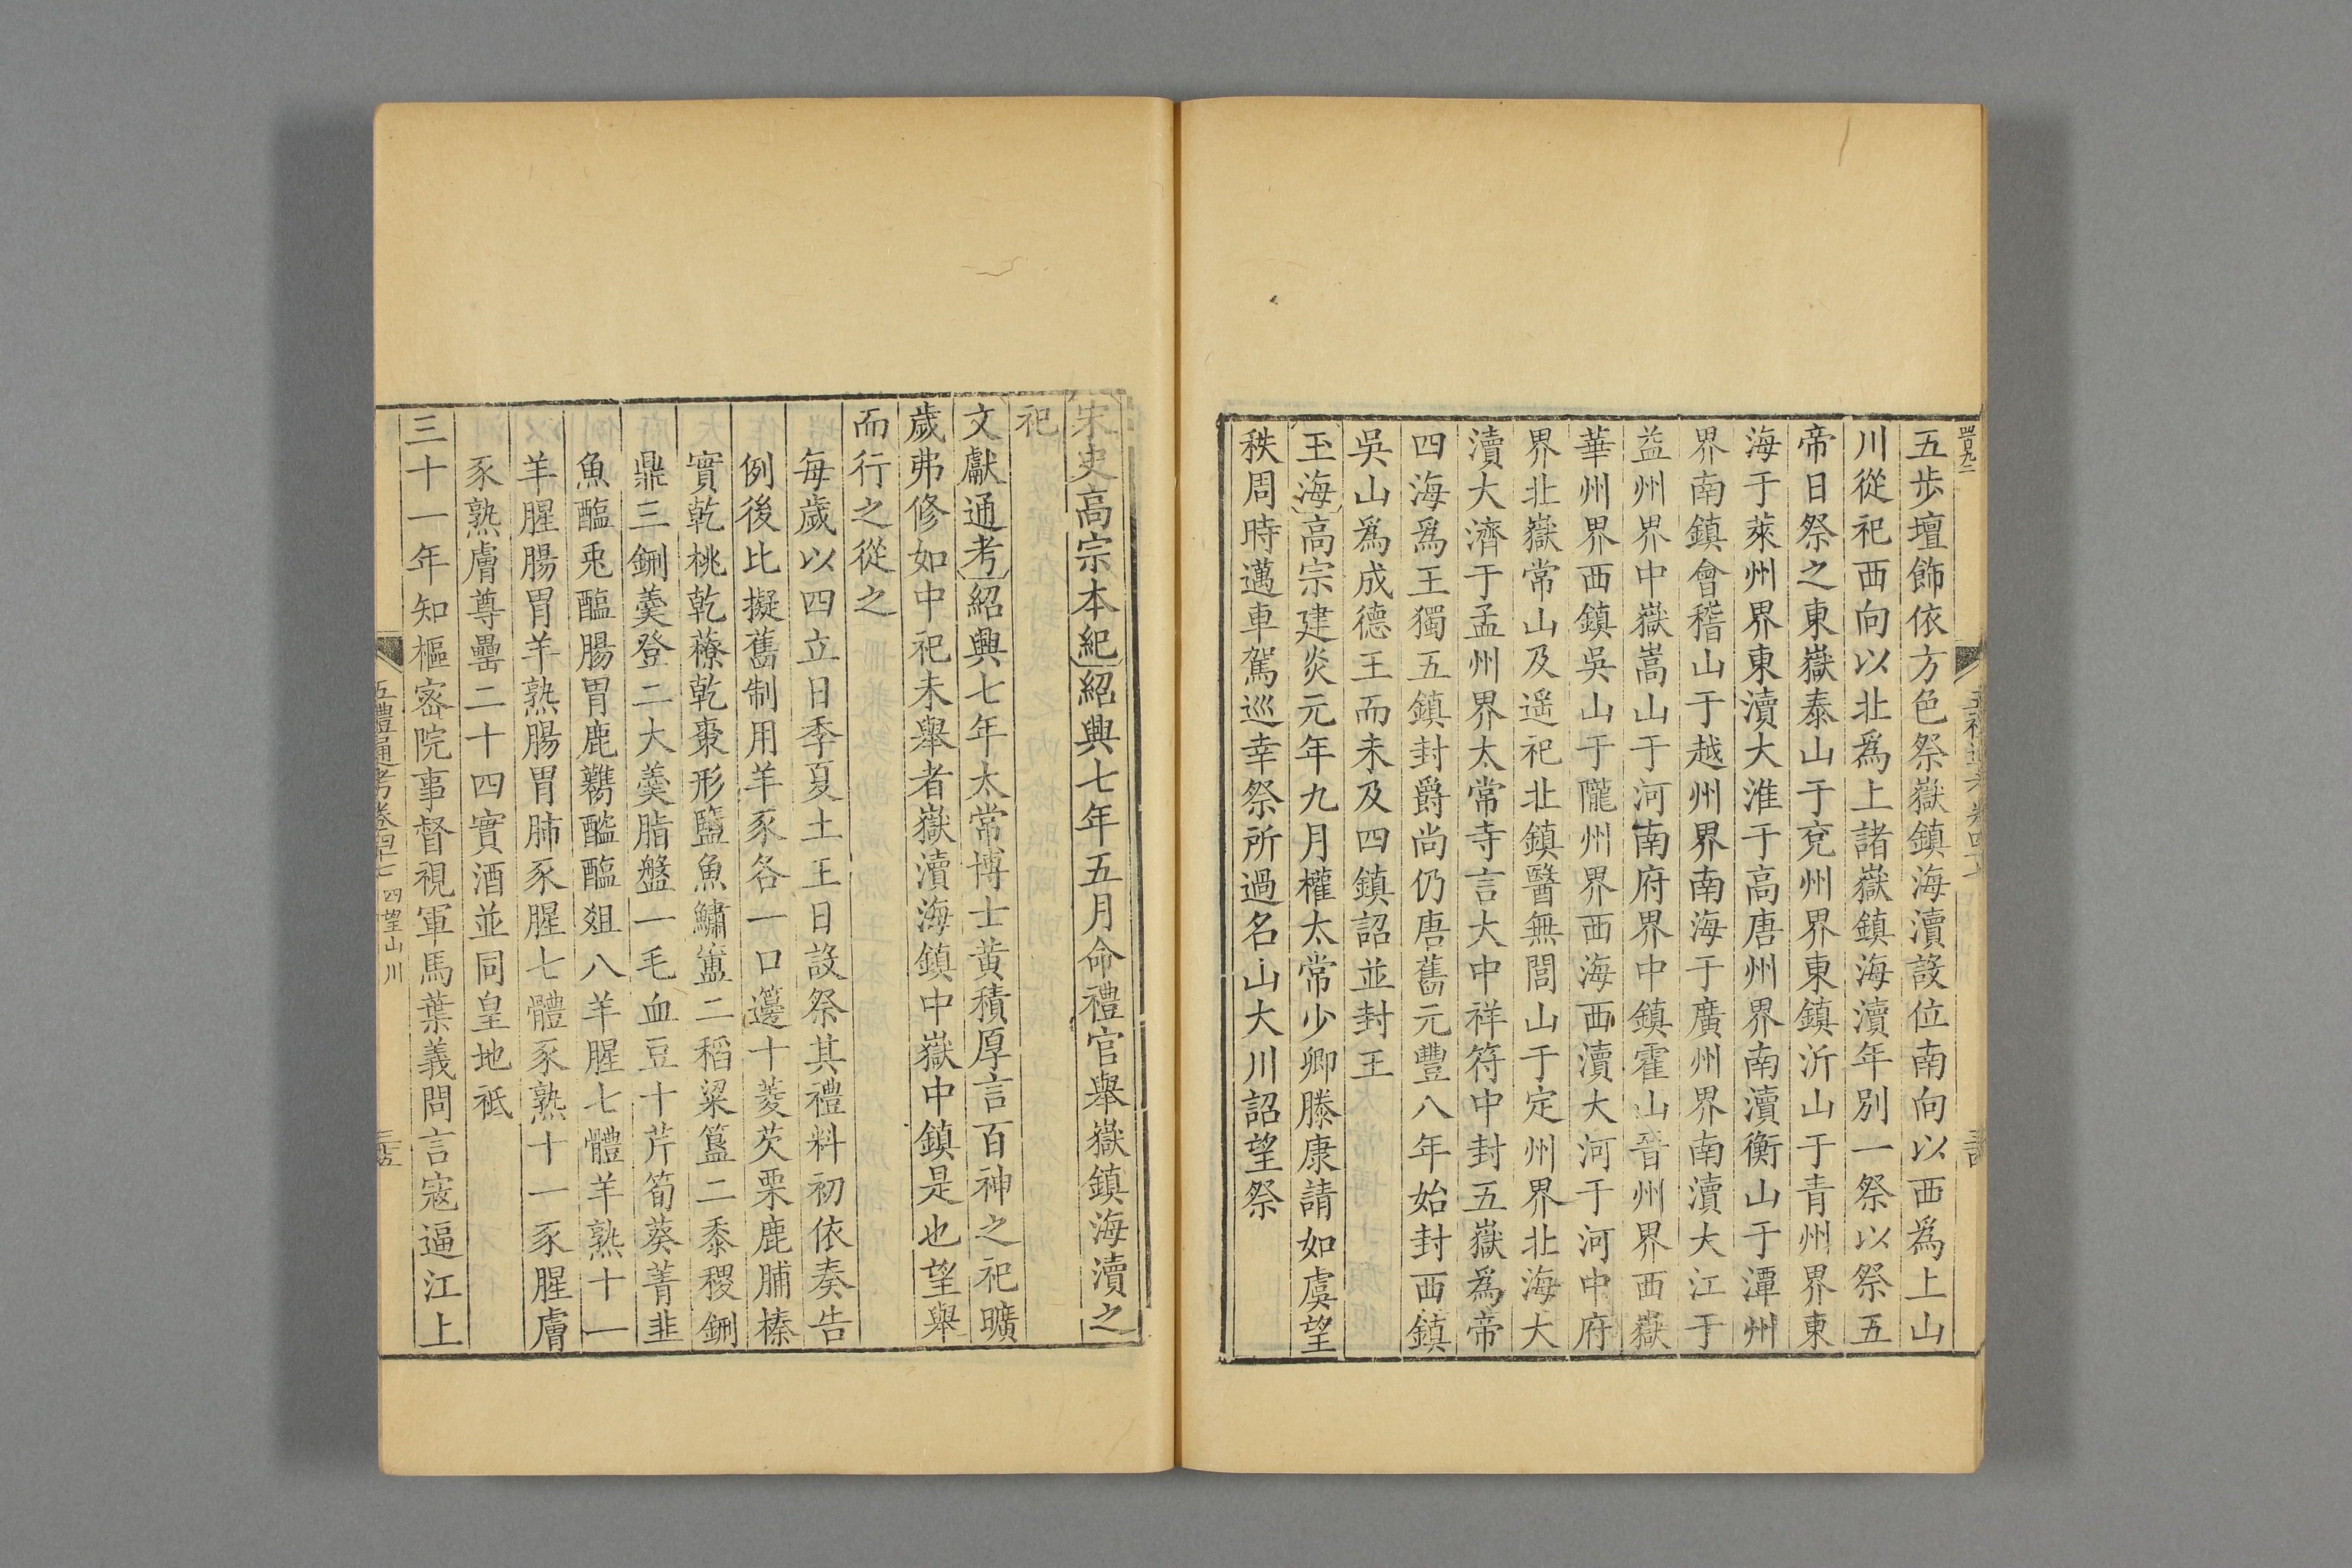 五歩壇飾依方色祭嶽鎮海瀆設位南向以西爲上山
川從祀西向以北爲上諸嶽鎮海瀆年別一祭以祭五
帝日祭之東嶽泰山于兗州界東鎮沂山于青州界東
海于萊州界東瀆大淮于高唐州界南瀆衡山于潭州
界南鎮會稽山于越州界南海于廣州界南瀆大江于
益州界中嶽嵩山于河南府界中鎮霍山晉州界西嶽
華州界西鎮吳山于隴州界西海西瀆大河于河中府
界北嶽常山及遥祀北鎮醫無閭山于定州界北海大
瀆大濟于孟州界太常寺言大中祥符中封五嶽爲帝
四海爲王獨五鎮封爵尚仍唐舊元豐八年始封西鎮
吳山爲成德王而未及四鎮詔並封王
玉海高宗建炎元年九月權太常少卿滕康請如虞望
秩周時邁車駕巡幸祭所過名山大川詔望祭
宋史高宗本紀紹興七年五月命禮官舉嶽鎮海瀆之
祀
文獻通考紹興七年太常博士黄積厚言百神之祀曠
歲弗修如中祀未舉者嶽瀆海鎮中嶽中鎮是也望舉
而行之從之
每歲以四立日季夏土王日設祭其禮料初依奏告
例後比擬舊制用羊豕各一口籩十菱芡栗鹿脯榛
實乾桃乾䕩乾棗形鹽魚鱐簠二稻粱簋二黍稷鉶
鼎三鉶羹登二大羹脂盤一毛血豆十芹筍葵菁韭
魚醢兎醢腸胃鹿臡醓醢爼八羊腥七體羊熟十一
羊腥腸胃羊熟腸胃肺豕腥七體豕熟十一豕腥膚
豕熟膚尊罍二十四實酒並同皇地祗
三十一年知樞宻院事督視軍馬葉義問言寇逼江上
五禮通考卷四十七 四望山川